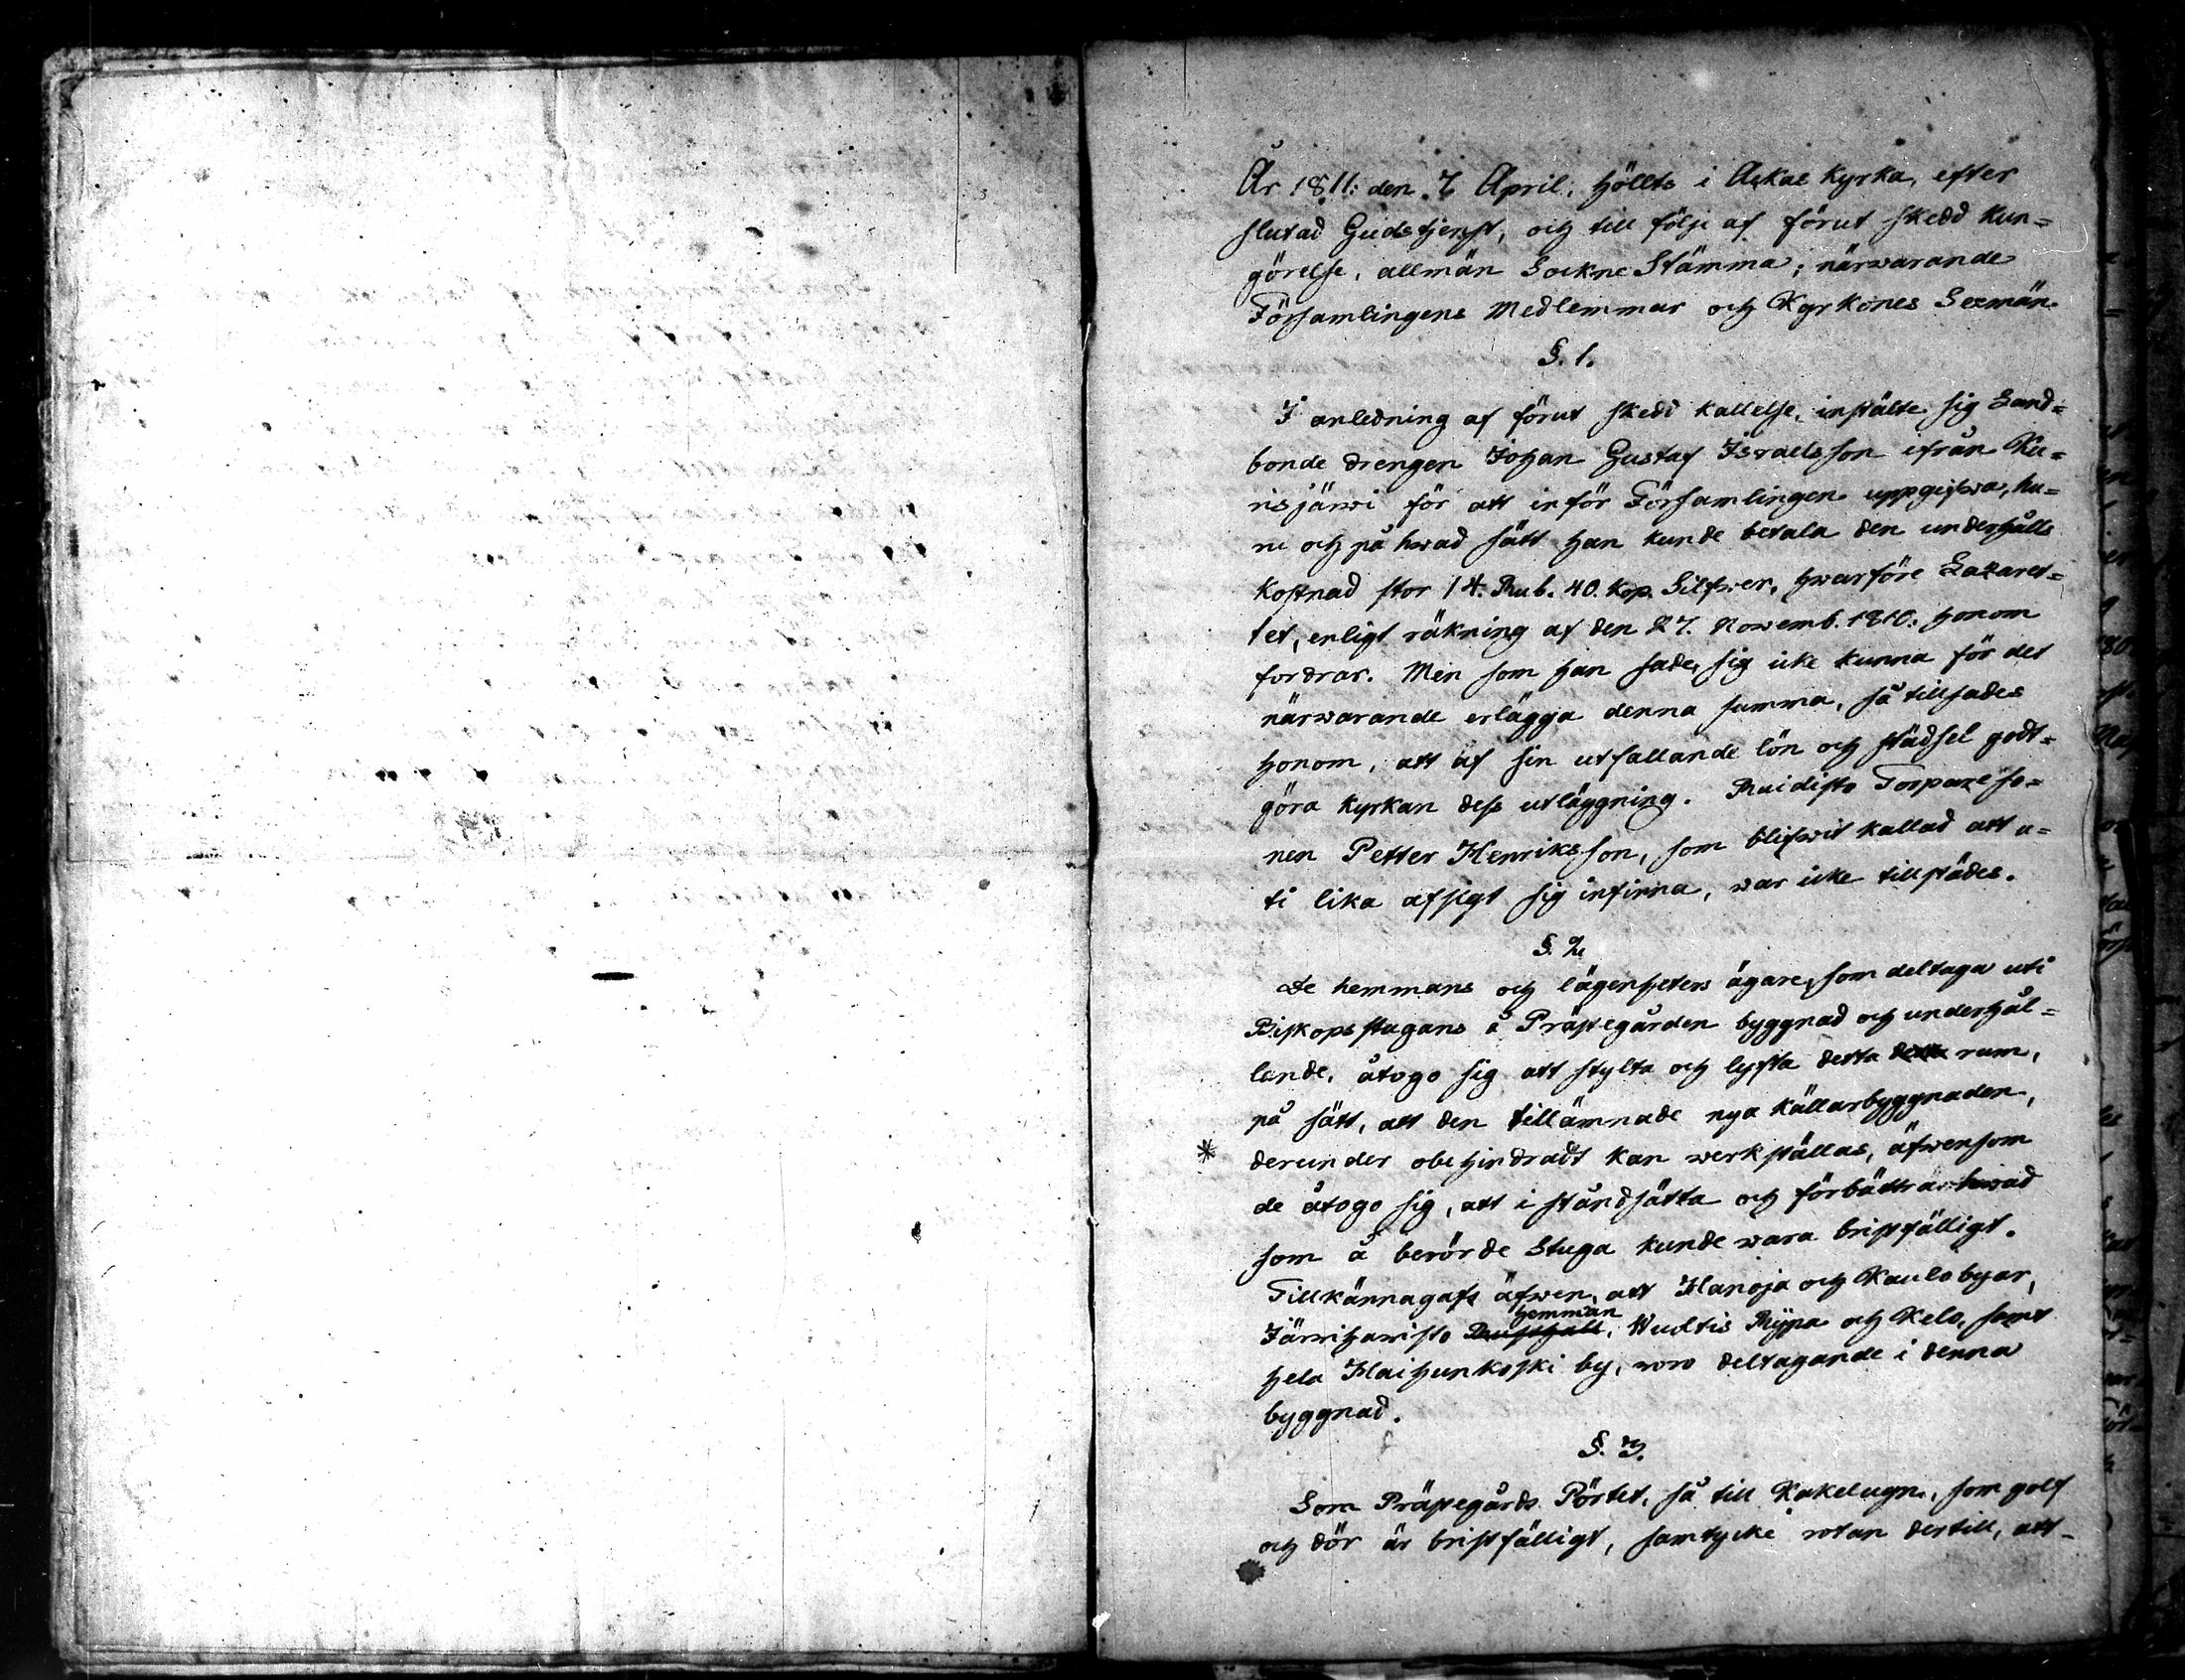 År 1811: den 7 April, höllts i Askas kyrka, efter
slutad Gudstjenst, och till följe af förut skedd kun=
görelse, allmän Sockne Stämma; närwarande
Församlingens Medlemmar och Kyrkones Sexmän.
§. 1.
I anledning af förut skedd kallelse, instälte sig Land=
bonde drengen Johan Gustaf Israelsson ifrån Ku=
risjärwi för att inför Församlingen uppgifwa, hu=
ru och på hwad sätt han kunde betala den underhålls
kostnad stor 14. Rub. 40. kop. Silfwer, hwarföre Lazaret=
tet, enligt räkning af den 27. Novemb. 1810. honom
fordrar. Men som han sade sig icke kunna för det
närwarande erlägga denna summa, så tillsades
honom, att af sin utfallande lön och städsel godt=
göra kyrkan dess utläggning. Ruidisto Torpareso=
nen Petter Henriksson, som blifwit kallad att u=
ti lika afsigt sig infinna, war icke tillstädes.
§. 2.
De hemmans och lägenheters ägare, som deltaga uti
Biskopsstugans å Prästegården byggnad och underhål=
lande, åtogo sig att stylta och lyfta detta rum,
på sätt, att den tillämnade nya källarbyggnaden,
* derunder obehindradt kan werkställas, äfwensom
de åtogo sig, att i ståndsätta och förbättra hwad
som å berörde Stuga kunde wara bristfälligt.
Tillkännagafs äfwen, att Hanoja och Kaulo byar,
hemman
Järwihawisto Rusthåll, Nuutis Rÿpa och Kelo, samt
hela Haihunkoski by, woro deltagande i denna
byggnad.
§. 3.
Som Prästegårds Pörtet, så till Kakelugn, som golf
och dör är bristfälligt, samtycke rotan dertill, att